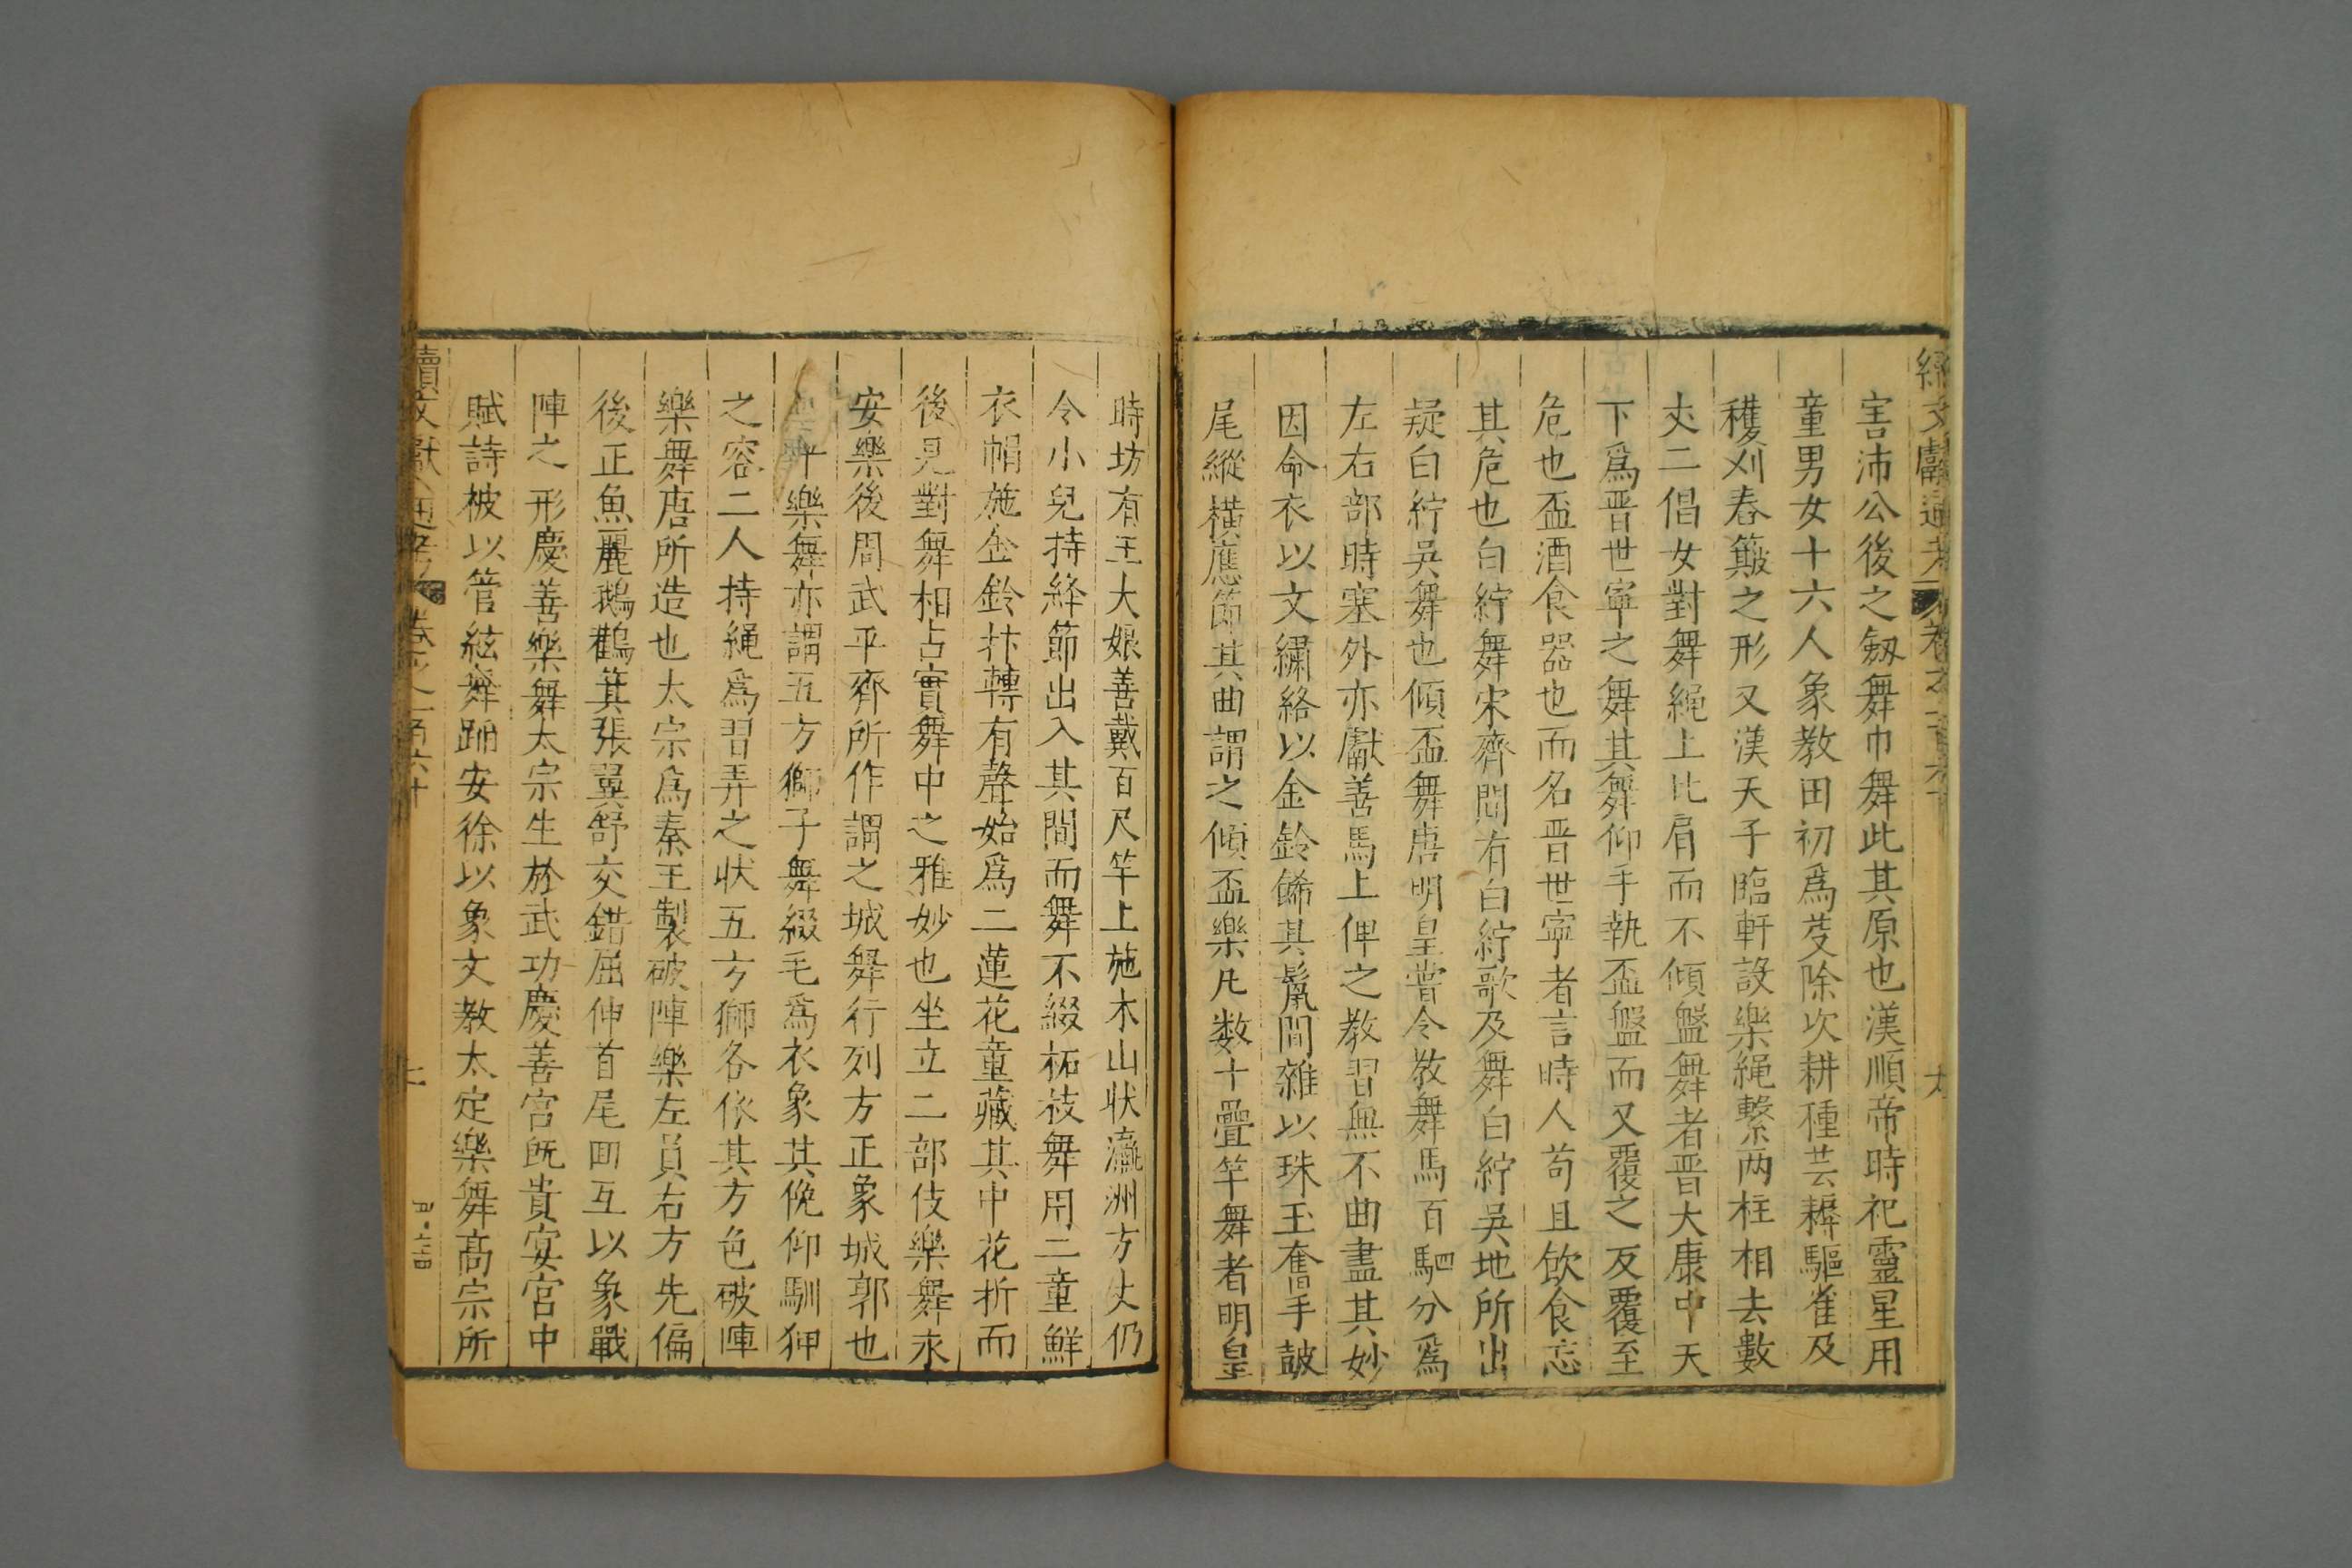 續文獻通考 卷之一百六十 六
害沛公後之劔舞巾舞此其原也漢順帝時祀靈星用
童男女十六人象教田初爲芟除次耕種芸耨驅雀及
穫刈舂簸之形又漢天子臨軒設樂繩繫两柱相去數
丈二倡女對舞繩上比肩而不傾盤舞者晋大康中天
下爲晋世寧之舞其舞仰手執盃盤而又覆之反覆至
危也盃酒食器也而名晋世寧者言時人苟且飲食忘
其危也白紵舞宋齊間有白紵歌及舞白紵吳地所出
疑白紵吳舞也傾盃舞唐明皇嘗令教舞馬百駟分爲
左右部時塞外亦獻善馬上俾之教習無不曲盡其妙
因命衣以文繡絡以金鈴餙其鬣間雜以珠玉奮手皷
尾縱橫應節其曲謂之傾盃樂凡数十疊竿舞者明皇
時坊有王大娘善戴百尺竿上施木山状瀛洲方丈仍
令小兒持絳節出入其間而舞不綴柘枝舞用二童鮮
衣帽施金鈴抃轉有聲始爲二蓮花童藏其中花折而
後見對舞相占實舞中之雅妙也坐立二部伎樂舞來
安樂後周武平齊所作謂之城舞行列方正象城郭也
平樂舞亦謂五方獅子舞綴毛爲衣象其俛仰馴狎
之容二人持繩爲習弄之状五方獅各依其方色破陣
樂舞唐所造也太宗爲秦王製破陣樂左員右方先偏
後正魚麗鵝鸛箕張翼舒交錯屈伸首尾囬互以象戰
陣之形慶善樂舞太宗生於武功慶善宮旣貴宴宮中
賦詩被以管絃舞蹈安徐以象文教太定樂舞高宗所
續文獻通考 卷之一百六十 七